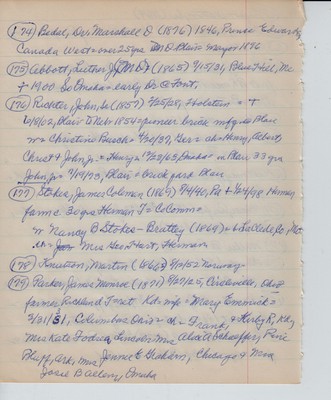 174) Bedal, Dr. Marshall D (1876) 1846, Prince Edwards,
Canada West = over 25 yrs M.D. Blair = mayor 1896
175) Abbott, Luther J. (M.D.) (1865) 9/15/31, Blue Hill, Me
+ 1900 So Omaha = early Dr @ Font,
176) Richter, John, Sr (1857) 7/25/28, Holstein = +
6/8/02, Blair to Neb 1854 = pioneer brick mfg in Blair
w = Christina Busch = 4/30/37, Ger = ch = Henry, Albert,
Christ & John Jr. = Henry = in Blair 33 yrs
John, Jr. = 9/19/35, Blair = brick yard Blair
177) Stokes, James Coleman (1869) 7/4/40, Pa + 4/24/98 Herman
farm = 30 yrs Herman T = Co Comm =
w Nancy B Stokes - Brattey (1869) = La Co, Mo
ch = Mrs Geo Hart, Herman
178) Knutton, Martin (1868) 7/9/52 Norway =
179) Parker, James Monroe (1871) 9/27/25, Circleville, Ohio
farmer Richland Pret Kds wife = Mary Emerick =
3/31/31, Columbus Ohio = ch = Frank, & Kirby R, Kd,
Mrs Kate Fodrea, Lincoln; Mrs Alice A Schaeffer, Pine
Bluff, Ark; Mrs Jennie E Graham, Chicago & Mrs
Josie B Allen, Omaha